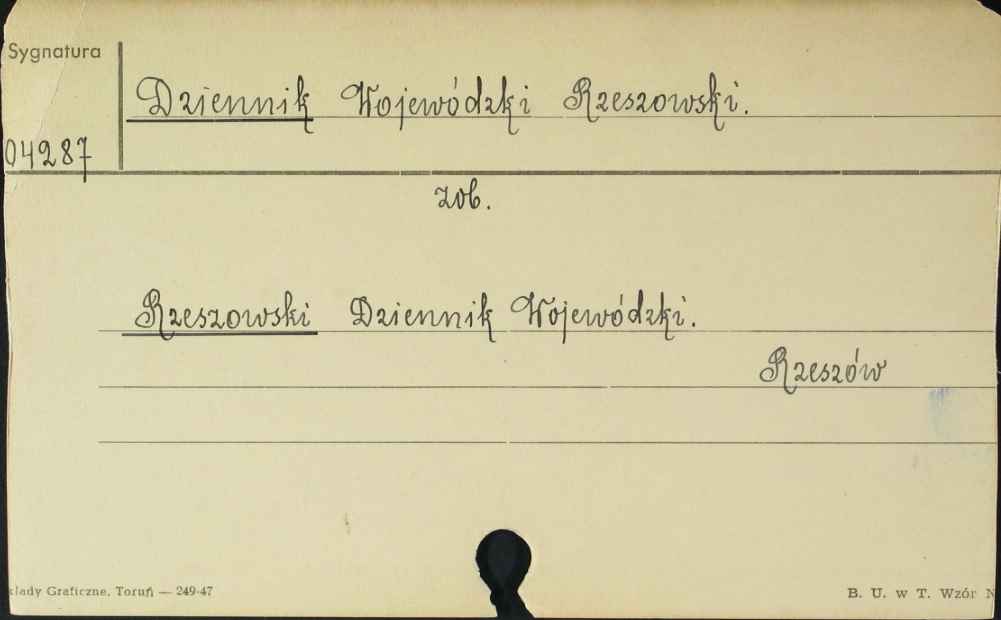 Sygnatura
Dziennik Wojewódzki Rzeszowski.
04287
zob.
Rzeszowski Dziennik Wojewódzki.
Rzeszów
kłady Graficzne, Toruń — 249-47
B. U. w T. Wzór N